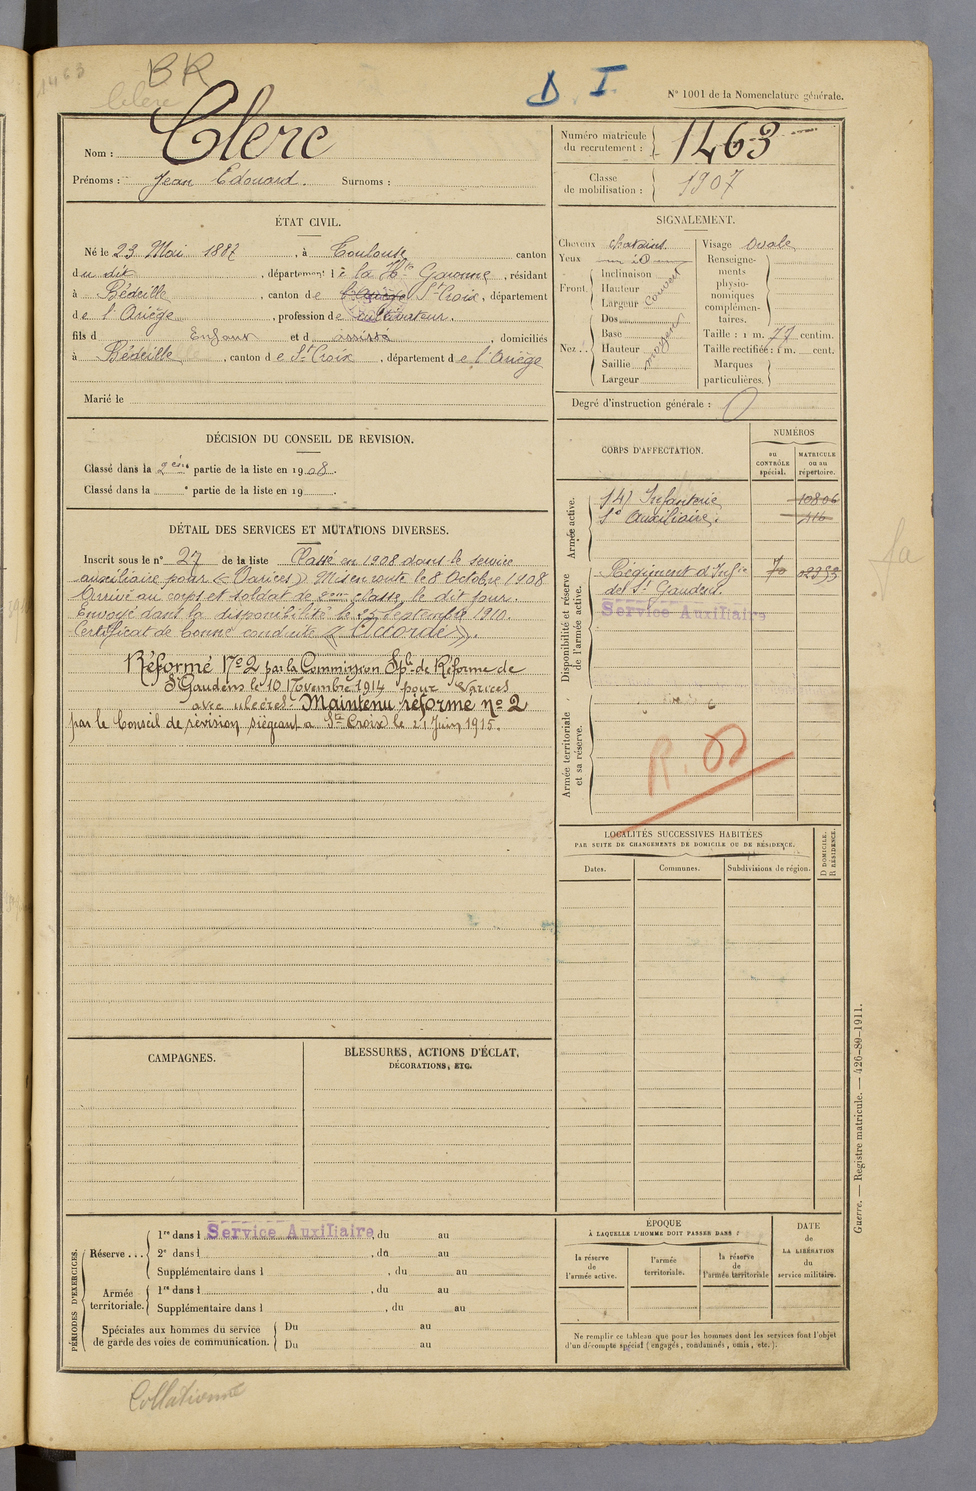 1463
BR
Clerc
D. I
N° 1001 de la Nomenclature générale.
Nom : Clerc
Prénoms : Jean Edouard. Surnoms :
Numéro matricule du recrutement : 1463
Classe de mobilisation : 1907
ÉTAT CIVIL.
Né le 23 Mai 1887, à Toulouse canton
du dit, département de la Hte Garonne, résidant
à Bédeille, canton de l'Ariège St Croix, département
de l'Ariège, profession de cultivateur.
fils d Enfant et d assisté, domiciliés
à Bédeille, canton de St Croix, département de l'Ariège
Marié le
SIGNALEMENT.
Cheveux chatains
Yeux
Front. Inclinaison
Hauteur
Largeur
couvert
Nez. Dos
Base
Hauteur
Saillie
Largeur
moyen
Visage ovale
Renseignements physionomiques complémentaires.
Taille : 1 m. 77 centim.
Taille rectifiée : 1 m. cent.
Marques particulières.
Degré d'instruction générale : 0
DÉCISION DU CONSEIL DE REVISION.
Classé dans la 2e partie de la liste en 1908.
Classé dans la e partie de la liste en 19 .
DÉTAIL DES SERVICES ET MUTATIONS DIVERSES.
Inscrit sous le n° 27 de la liste Classé en 1908 dans le service
auxiliaire pour « Varices » Mis en route le 8 Octobre 1908
Arrivé au corps et soldat de 2ème classe, le dit jour.
Envoyé dans la disponibilité le 25 Septembre 1910.
Certificat de bonne conduite « Accordé ».
Réformé N° 2 par la Commission Sple de Réforme de
St Gaudens le 10 Novembre 1914 pour varices
avec ulcères. Maintenu réformé n° 2
par le Conseil de révision siégeant à Ste Croix le 21 Juin 1915.
CORPS D'AFFECTATION.
NUMÉROS
au CONTRÔLE spécial.
MATRICULE ou au répertoire.
Armée active.
141 Infanterie 10806
Sce Auxiliaire. 416
Disponibilité et réserve de l'armée active.
Régiment d'Infie 70
de St Gaudens.
Service Auxiliaire
Armée territoriale et sa réserve.
LOCALITÉS SUCCESSIVES HABITÉES
PAR SUITE DE CHANGEMENTS DE DOMICILE OU DE RÉSIDENCE.
Dates.
Communes.
Subdivisions de région.
D DOMICILE.
R RÉSIDENCE.
CAMPAGNES.
BLESSURES, ACTIONS D'ÉCLAT,
DÉCORATIONS, ETC.
PÉRIODES D'EXERCICES.
Réserve... 1re dans l Service Auxiliaire, du au
2e dans l , du au
Supplémentaire dans l , du au
Armée territoriale. 1re dans l , du au
Supplémentaire dans l , du au
Spéciales aux hommes du service de garde des voies de communication. Du au
Du au
ÉPOQUE
À LAQUELLE L'HOMME DOIT PASSER DANS :
la réserve de l'armée active.
l'armée territoriale.
la réserve de l'armée territoriale
DATE
de
LA LIBÉRATION
du
service militaire.
Ne remplir ce tableau que pour les hommes dont les services font l'objet
d'un décompte spécial (engagés, condamnés, omis, etc.).
Guerre. — Registre matricule. — 426-89-1911.
Collationné